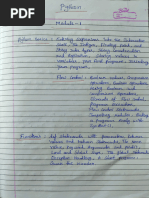 Python
Module - 1
Python Basics : Entering Expressions into the Interactive
Shell, The Integer, Floating Point and
String Data Types, String Concatenation
and Replication, Storing Values in
Variables, Your First Program, Dissecting
Your Program.
Flow Control : Boolean Values, Comparison
Operators, Boolean Operators,
Mixing Boolean and
Comparison Operators,
Elements of Flow Control,
Program Execution,
Flow Control Statements,
Importing Modules, Ending
a Program Early with
sys.exit()
Functions : def Statements with Parameters, Return
Values and Return Statements, The None
Value, Keyword Arguments and print(),
Local and Global Scope, The Global Statement,
Exception Handling, A Short Program:
Guess the Number